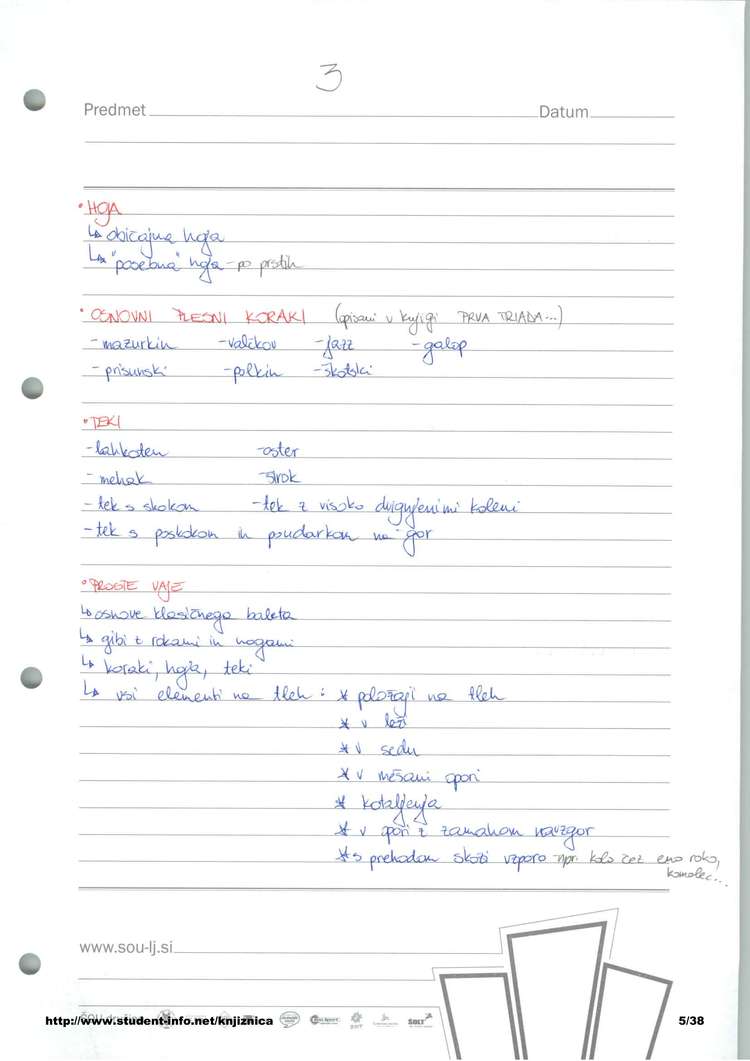 3
Predmet Datum
• HOJA
↳ običajna hoja
↳ "posebna" hoja - po prstih
• OSNOVNI PLESNI KORAKI (opisani v knjigi PRVA TRIADA...)
- mazurkin - valčkov - jazz - galop
- prisunski - polkin - škotski
• TEKI
- lahkoten - oster
- mehak - širok
- tek s skokom - tek z visoko dvignjenimi koleni
- tek s poskokom in poudarkom na gor
• PROSTE VAJE
↳ osnove klasičnega baleta
↳ gibi z rokami in nogami
↳ koraki, hoja, teki
↳ vsi elementi na tleh : * položaji na tleh
* v leži
* v sedu
* v mešani opori
* kotaljenja
* v opori z zamahom navzgor
* s prehodom skozi vzporo npr. kolo čez eno roko,
komolec...
www.sou-lj.si
http://www.student-info.net/knjiznica 5/38